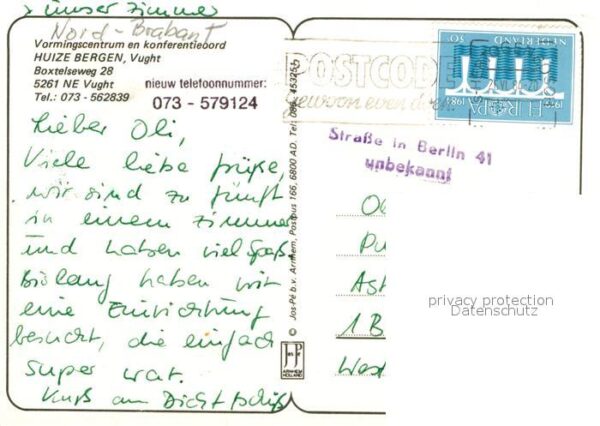 unser Zimmer
Nord-Brabant
Vormingscentrum en konferentieoord
HUIZE BERGEN, Vught
Boxtelseweg 28
5261 NE Vught
Tel.: 073 - 562839
nieuw telefoonnummer:
073 - 579124
Lieber Oli,
Viele liebe Grüße,
wir sind zu fünft
in einem Zimmer
und haben viel Spaß
Bislang haben wir
eine Einrichtung
besucht, die einfach
super war.
Kuß an
© Jos-Pé b.v. Arnhem, Postbus 166, 6800 AD. Tel.: 085
Jos Pé
ARNHEM
HOLLAND
POSTCODE
gewoon even doen
NEDERLAND
50
EUROPA
1959 1984
Straße in Berlin 41
unbekannt
Ol
Pu
Ast
1 B
West
privacy protection
Datenschutz